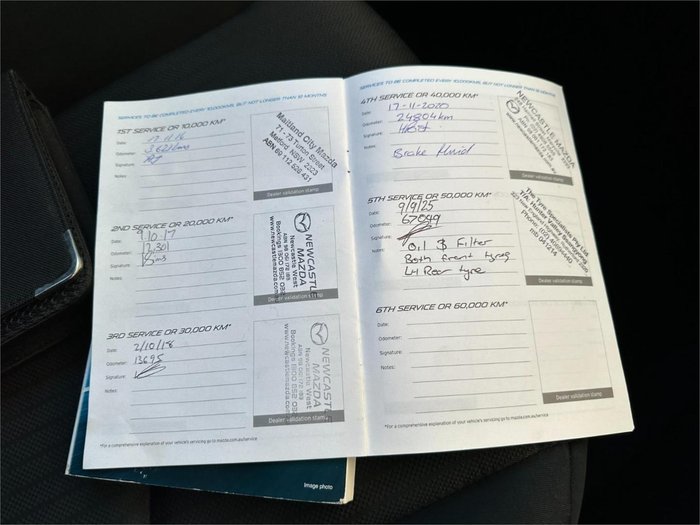 SERVICES TO BE COMPLETED EVERY 10,000KMS, BUT NOT LONGER THAN 12 MONTHS
1ST SERVICE OR 10,000 KM*
Date:
Odometer:
Signature:
Notes:
Maitland City Mazda
71 - 73 Turton Street
Metford, NSW 2323
ABN 69 112 826 431
Dealer validation stamp
2ND SERVICE OR 20,000 KM*
Date: 9/10/17
Odometer:
Signature:
Notes:
NEWCASTLE
MAZDA
Newcastle West
ABN 98 061 172 189
Bookings 1300 852 092
www.newcastlemazda.com
Dealer validation stamp
3RD SERVICE OR 30,000 KM*
Date: 2/10/18
Odometer: 13695
Signature:
Notes:
NEWCASTLE
MAZDA
Newcastle West
ABN 98 061 172 189
Bookings 1300 852 092
www.newcastlemazda.com
Dealer validation stamp
*For a comprehensive explanation of your vehicle's servicing go to mazda.com.au/service
SERVICES TO BE COMPLETED EVERY 10,000KMS, BUT NOT LONGER THAN 12 MONTHS
4TH SERVICE OR 40,000 KM*
Date: 17-11-2020
Odometer: 24804km
Signature:
Notes:
Brake fluid
NEWCASTLE
MAZDA
Dealer validation stamp
5TH SERVICE OR 50,000 KM*
Date: 9/9/25
Odometer: 67099
Signature:
Notes: Oil & Filter
Both front tyres
LH Rear tyre
The Tyre Specialists Pty Ltd
Dealer validation stamp
6TH SERVICE OR 60,000 KM*
Date:
Odometer:
Signature:
Notes:
Dealer validation stamp
*For a comprehensive explanation of your vehicle's servicing go to mazda.com.au/service
Image photo